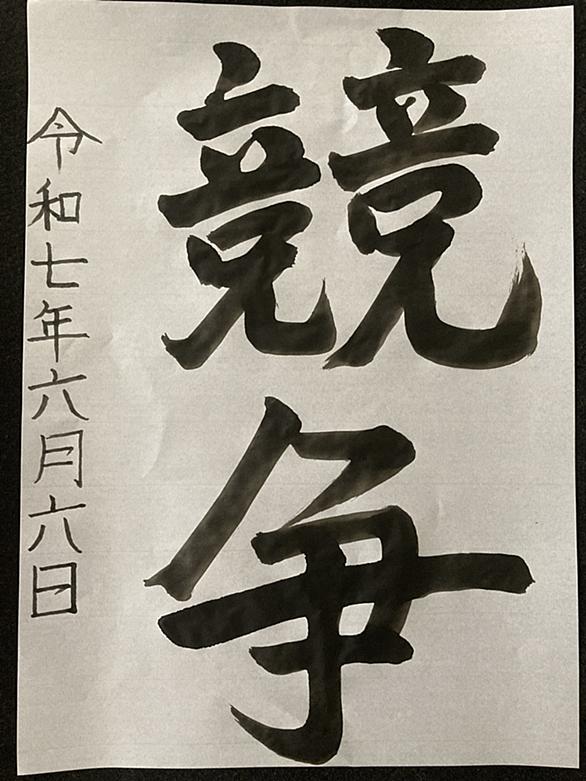 競争
令和七年六月六日